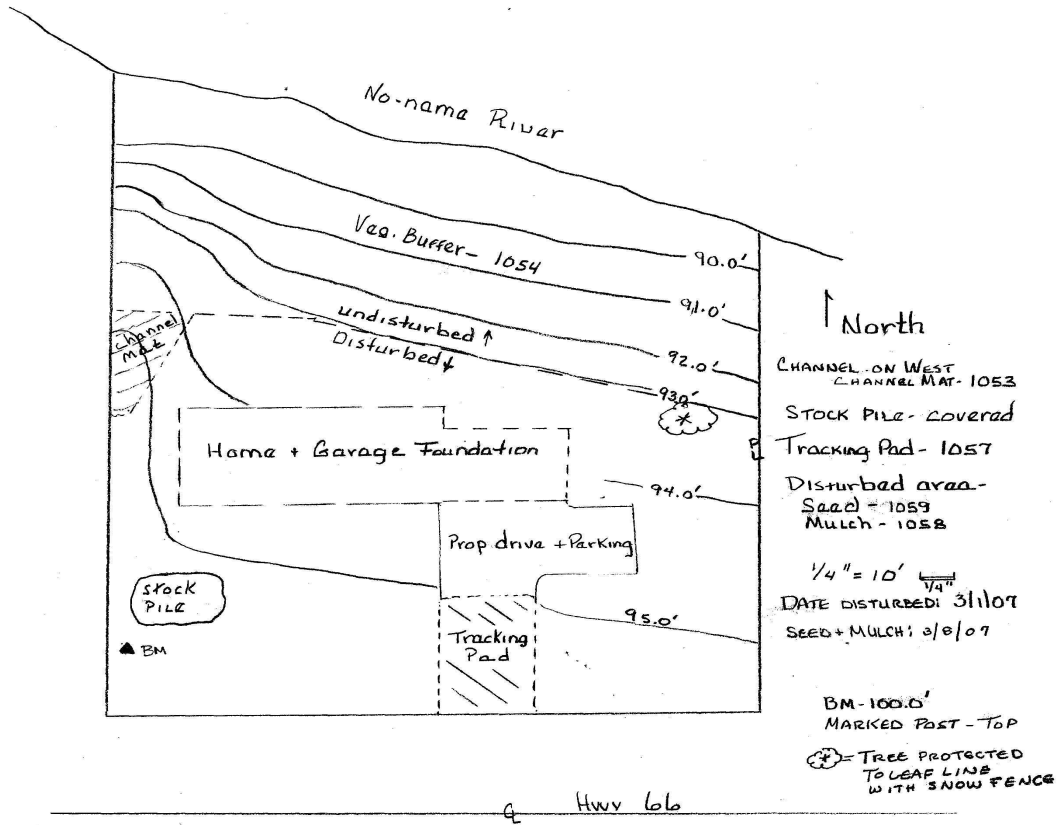 No-name River
Veg. Buffer- 1054
90.0'
91.0'
92.0'
93.0'
undisturbed
Disturbed
channel
mat
Home + Garage Foundation
94.0'
Prop. drive + Parking
STOCK
PILE
BM
Tracking
Pad
95.0'
North
CHANNEL ON WEST
CHANNEL MAT- 1053
STOCK PILE- covered
PL
Tracking Pad- 1057
Disturbed area-
Seed - 1059
Mulch - 1058
1/4" = 10'
1/4"
DATE DISTURBED: 3/1/07
SEED + MULCH: 3/8/07
BM-100.0'
MARKED POST - TOP
= TREE PROTECTED
TO LEAF LINE
WITH SNOW FENCE
CL Hwy 66